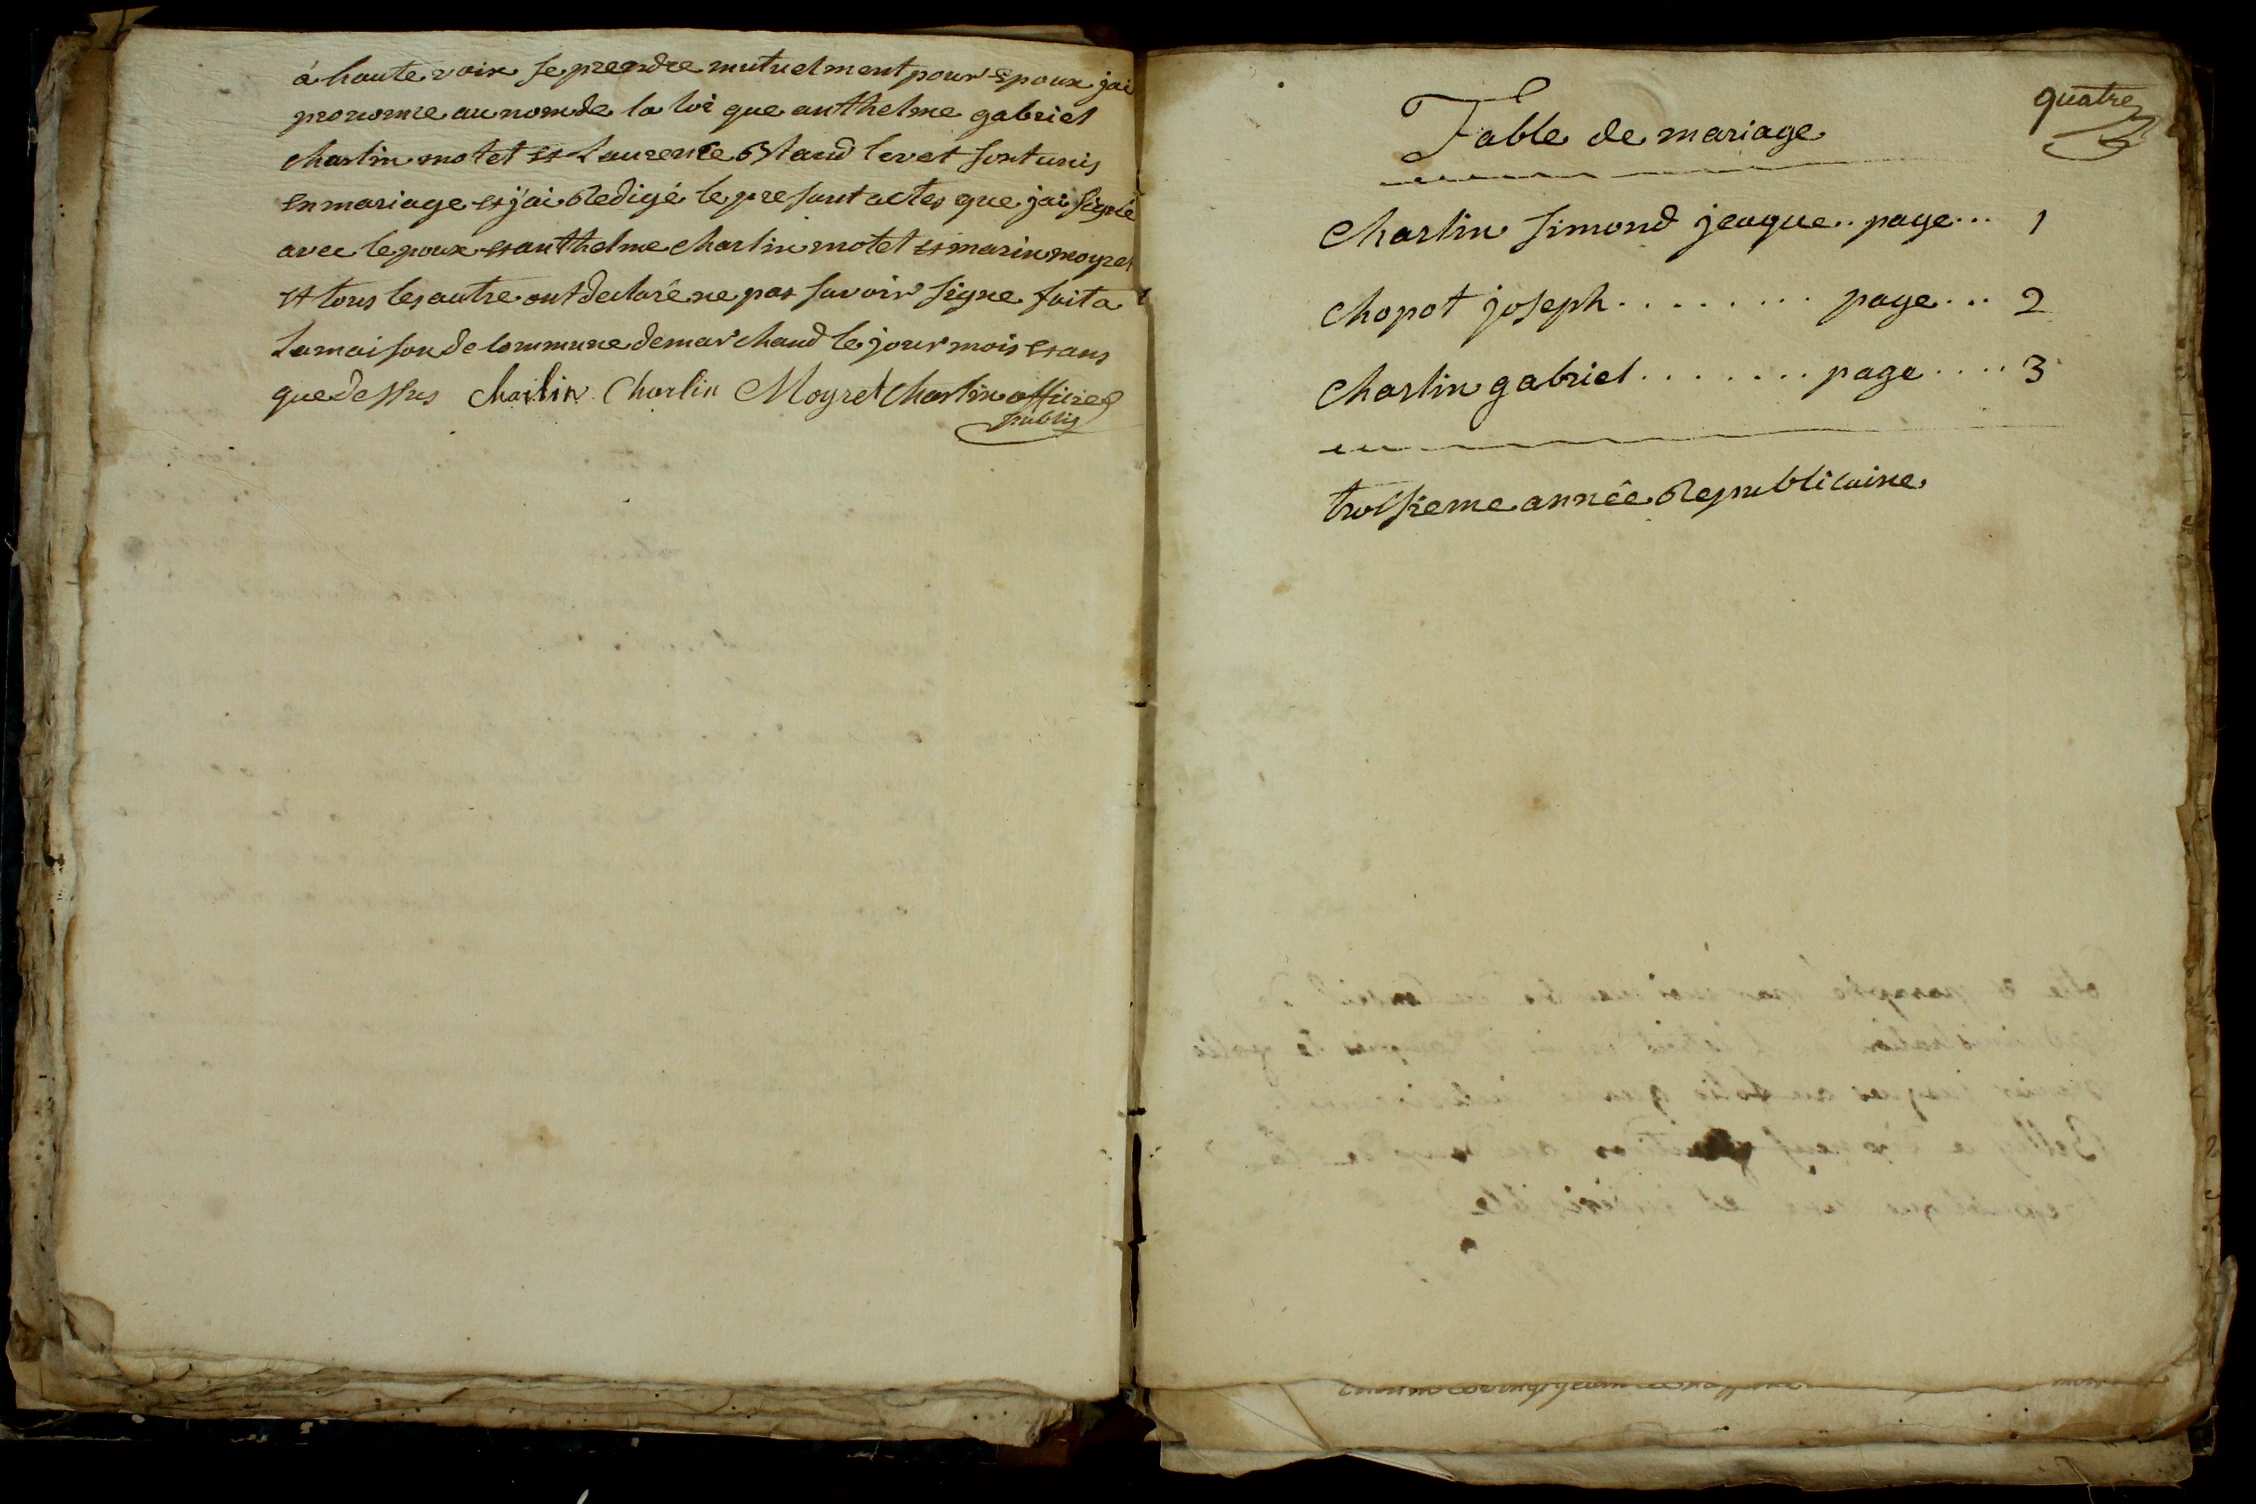 à haute voix se prendre mutuelment pour epoux jai
prononce au nom de la loi que anthelme gabriel
charlin motet et Laurence Bland levet sont unis
en mariage et j'ai Redigé le presant actes que jai signé
avec lepoux et anthelme charlin motet et marin moyret
et tous les autre ont declaré ne pas savoir signe fait a
la maison de commune de marchand le jour mois et ans
que dessus Charlin Charlin Moyret Charlin officier
public
quatre
Table de mariage
Charlin simond jeaque.. page... 1
Chapot joseph......... page... 2
Charlin gabriel....... page.... 3
troisieme année Republicaine